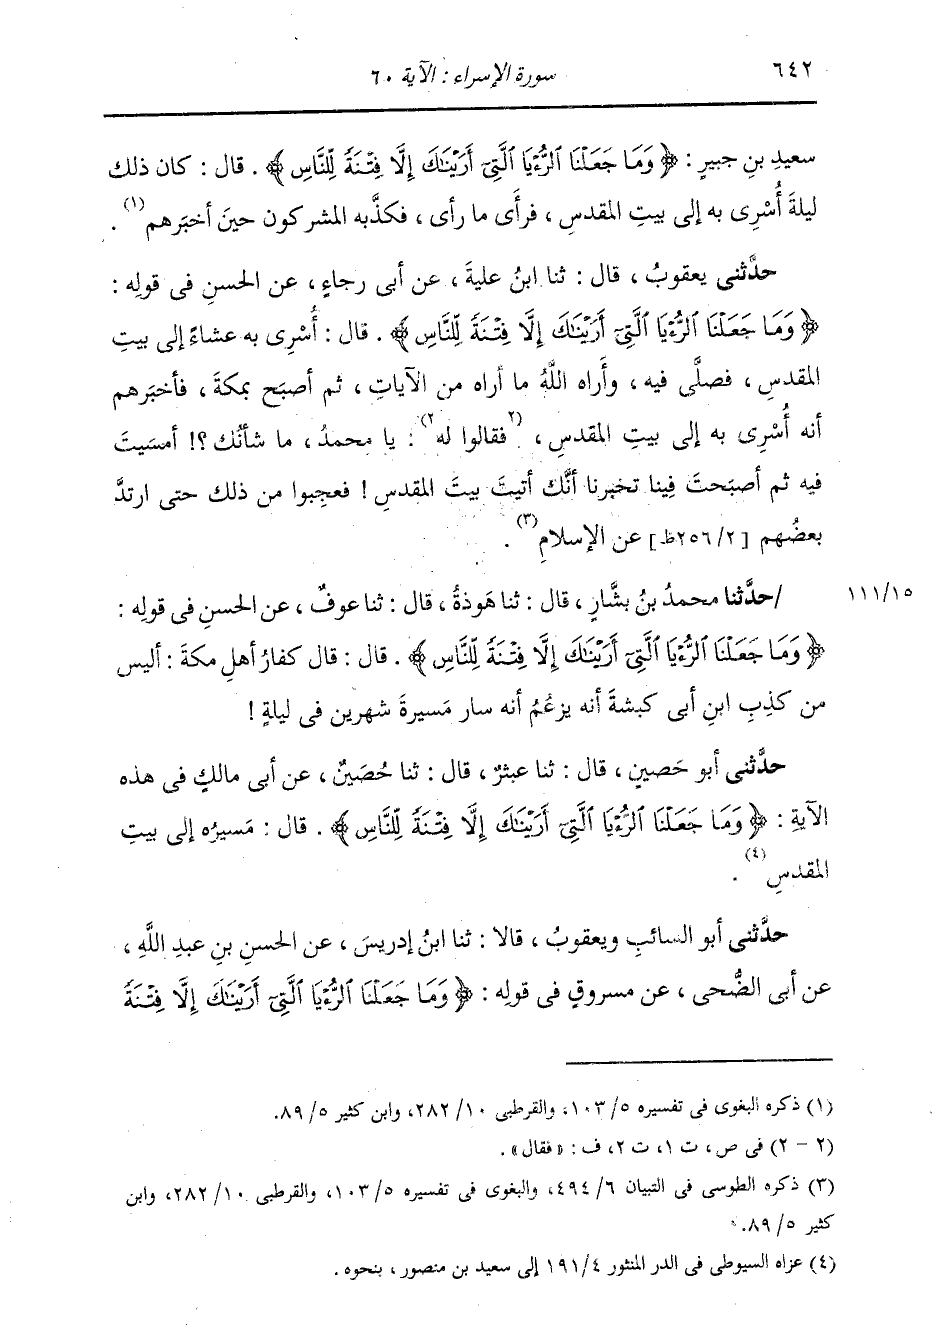 ٦٤٢ سورة الإسراء : الآية ٦٠
سعيدِ بنِ جبيرٍ : ﴿ وَمَا جَعَلْنَا ٱلرُّءْيَا ٱلَّتِىٓ أَرَيْنَٰكَ إِلَّا فِتْنَةً لِّلنَّاسِ ﴾ . قال : كان ذلك
ليلةَ أُسْرِى به إلى بيتِ المقدسِ ، فرأَى ما رأى ، فكذَّبه المشركون حينَ أخبَرهم (١) .
حدَّثنى يعقوبُ ، قال : ثنا ابنُ عليةَ ، عن أبى رجاءٍ ، عن الحسنِ فى قولِه :
﴿ وَمَا جَعَلْنَا ٱلرُّءْيَا ٱلَّتِىٓ أَرَيْنَٰكَ إِلَّا فِتْنَةً لِّلنَّاسِ ﴾ . قال : أُسْرِى به عشاءً إلى بيتِ
المقدسِ ، فصلَّى فيه ، وأَراه اللَّهُ ما أراه من الآياتِ ، ثم أصبَح بمكةَ ، فأخبَرهم
أنه أُسْرِى به إلى بيتِ المقدسِ ، (٢) فقالوا له (٢) : يا محمدُ ، ما شأنُك ؟! أمسَيتَ
فيه ثم أصبَحتَ فِينا تخبرنا أنَّك أتيتَ بيتَ المقدسِ ! فعجِبوا من ذلك حتى ارتدَّ
بعضُهم [ ٢/ ٢٥٦ظ] عن الإسلامِ (٣) .
١١١/١٥ /حدَّثنا محمدُ بنُ بشَّارٍ ، قال : ثنا هَوذةُ ، قال : ثنا عوفٌ ، عن الحسنِ فى قولِه :
﴿ وَمَا جَعَلْنَا ٱلرُّءْيَا ٱلَّتِىٓ أَرَيْنَٰكَ إِلَّا فِتْنَةً لِّلنَّاسِ ﴾ . قال : قال كفارُ أهلِ مكةَ : أليس
من كذِبِ ابنِ أبى كبشةَ أنه يزعُمُ أنه سار مَسيرةَ شهرين فى ليلةٍ !
حدَّثنى أبو حَصينٍ ، قال : ثنا عبثرٌ ، قال : ثنا حُصَينٌ ، عن أبى مالكٍ فى هذه
الآيةِ : ﴿ وَمَا جَعَلْنَا ٱلرُّءْيَا ٱلَّتِىٓ أَرَيْنَٰكَ إِلَّا فِتْنَةً لِّلنَّاسِ ﴾ . قال : مَسيرُه إلى بيتِ
المقدسِ (٤) .
حدَّثنى أبو السائبِ ويعقوبُ ، قالا : ثنا ابنُ إدريسَ ، عن الحسنِ بنِ عبدِ اللَّهِ ،
عن أبى الضُّحى ، عن مسروقٍ فى قولِه : ﴿ وَمَا جَعَلْنَا ٱلرُّءْيَا ٱلَّتِىٓ أَرَيْنَٰكَ إِلَّا فِتْنَةً
(١) ذكره البغوى فى تفسيره ٥/ ١٠٣، والقرطبى ١٠/ ٢٨٢، وابن كثير ٥/ ٨٩.
(٢ - ٢) فى ص، ت ١، ت ٢، ف : « فقال » .
(٣) ذكره الطوسى فى التبيان ٦/ ٤٩٤، والبغوى فى تفسيره ٥/ ١٠٣، والقرطبى ١٠/ ٢٨٢، وابن
كثير ٥/ ٨٩.
(٤) عزاه السيوطى فى الدر المنثور ٤/ ١٩١ إلى سعيد بن منصور ، بنحوه .